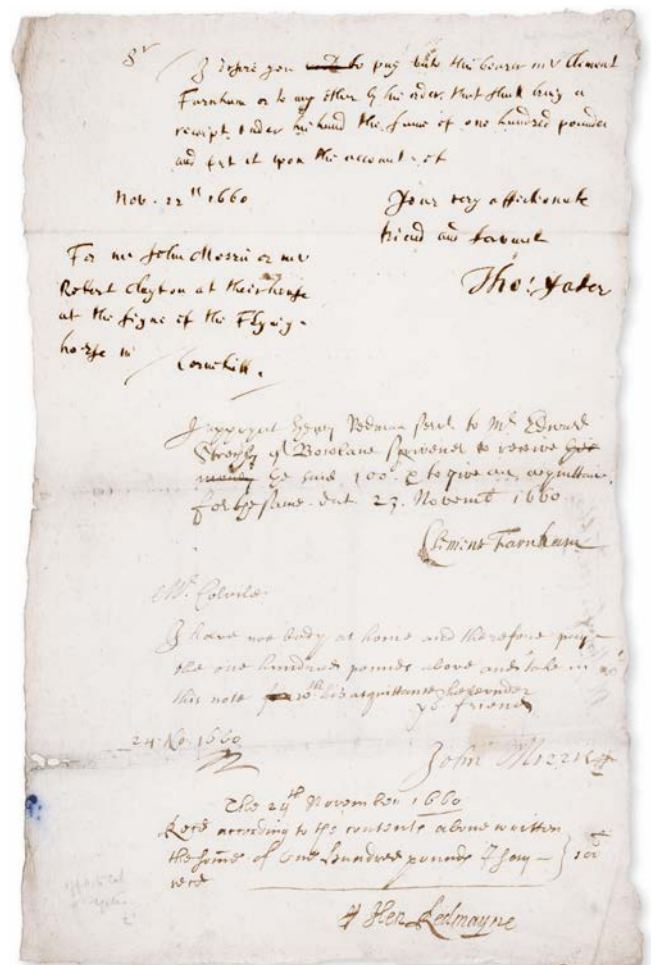 Sr
I desire you to pay unto the bearer mr Clement
Farnham or to any other by his order, that shall bring a
receipt under his hand the sume of one hundred pounds
and set it upon the account of
Nov. 22th 1660
Your very affectionate
friend and servant
Tho: Yates
For mr John Morris or mr
Robert Clayton at their house
at the signe of the Flying
horse in
Cornehill.
I appoynt Henry Redman servt to Mr Edward
of Bowlane Scrivener to receive
money he said 100 & to give an acquittance
for the same. dat. 23. Novemb 1660
Clement Farnham
Mr. Colvile
I have noe body at home and therefore pay
the one hundred pounds above and take in
this note wth his acquittance hereunder
yr friend
24 No. 1660
John Morris
The 24th November 1660
Recd according to the contents above written
the some of one hundred pounds I say 100
recd
Hen Redmayne